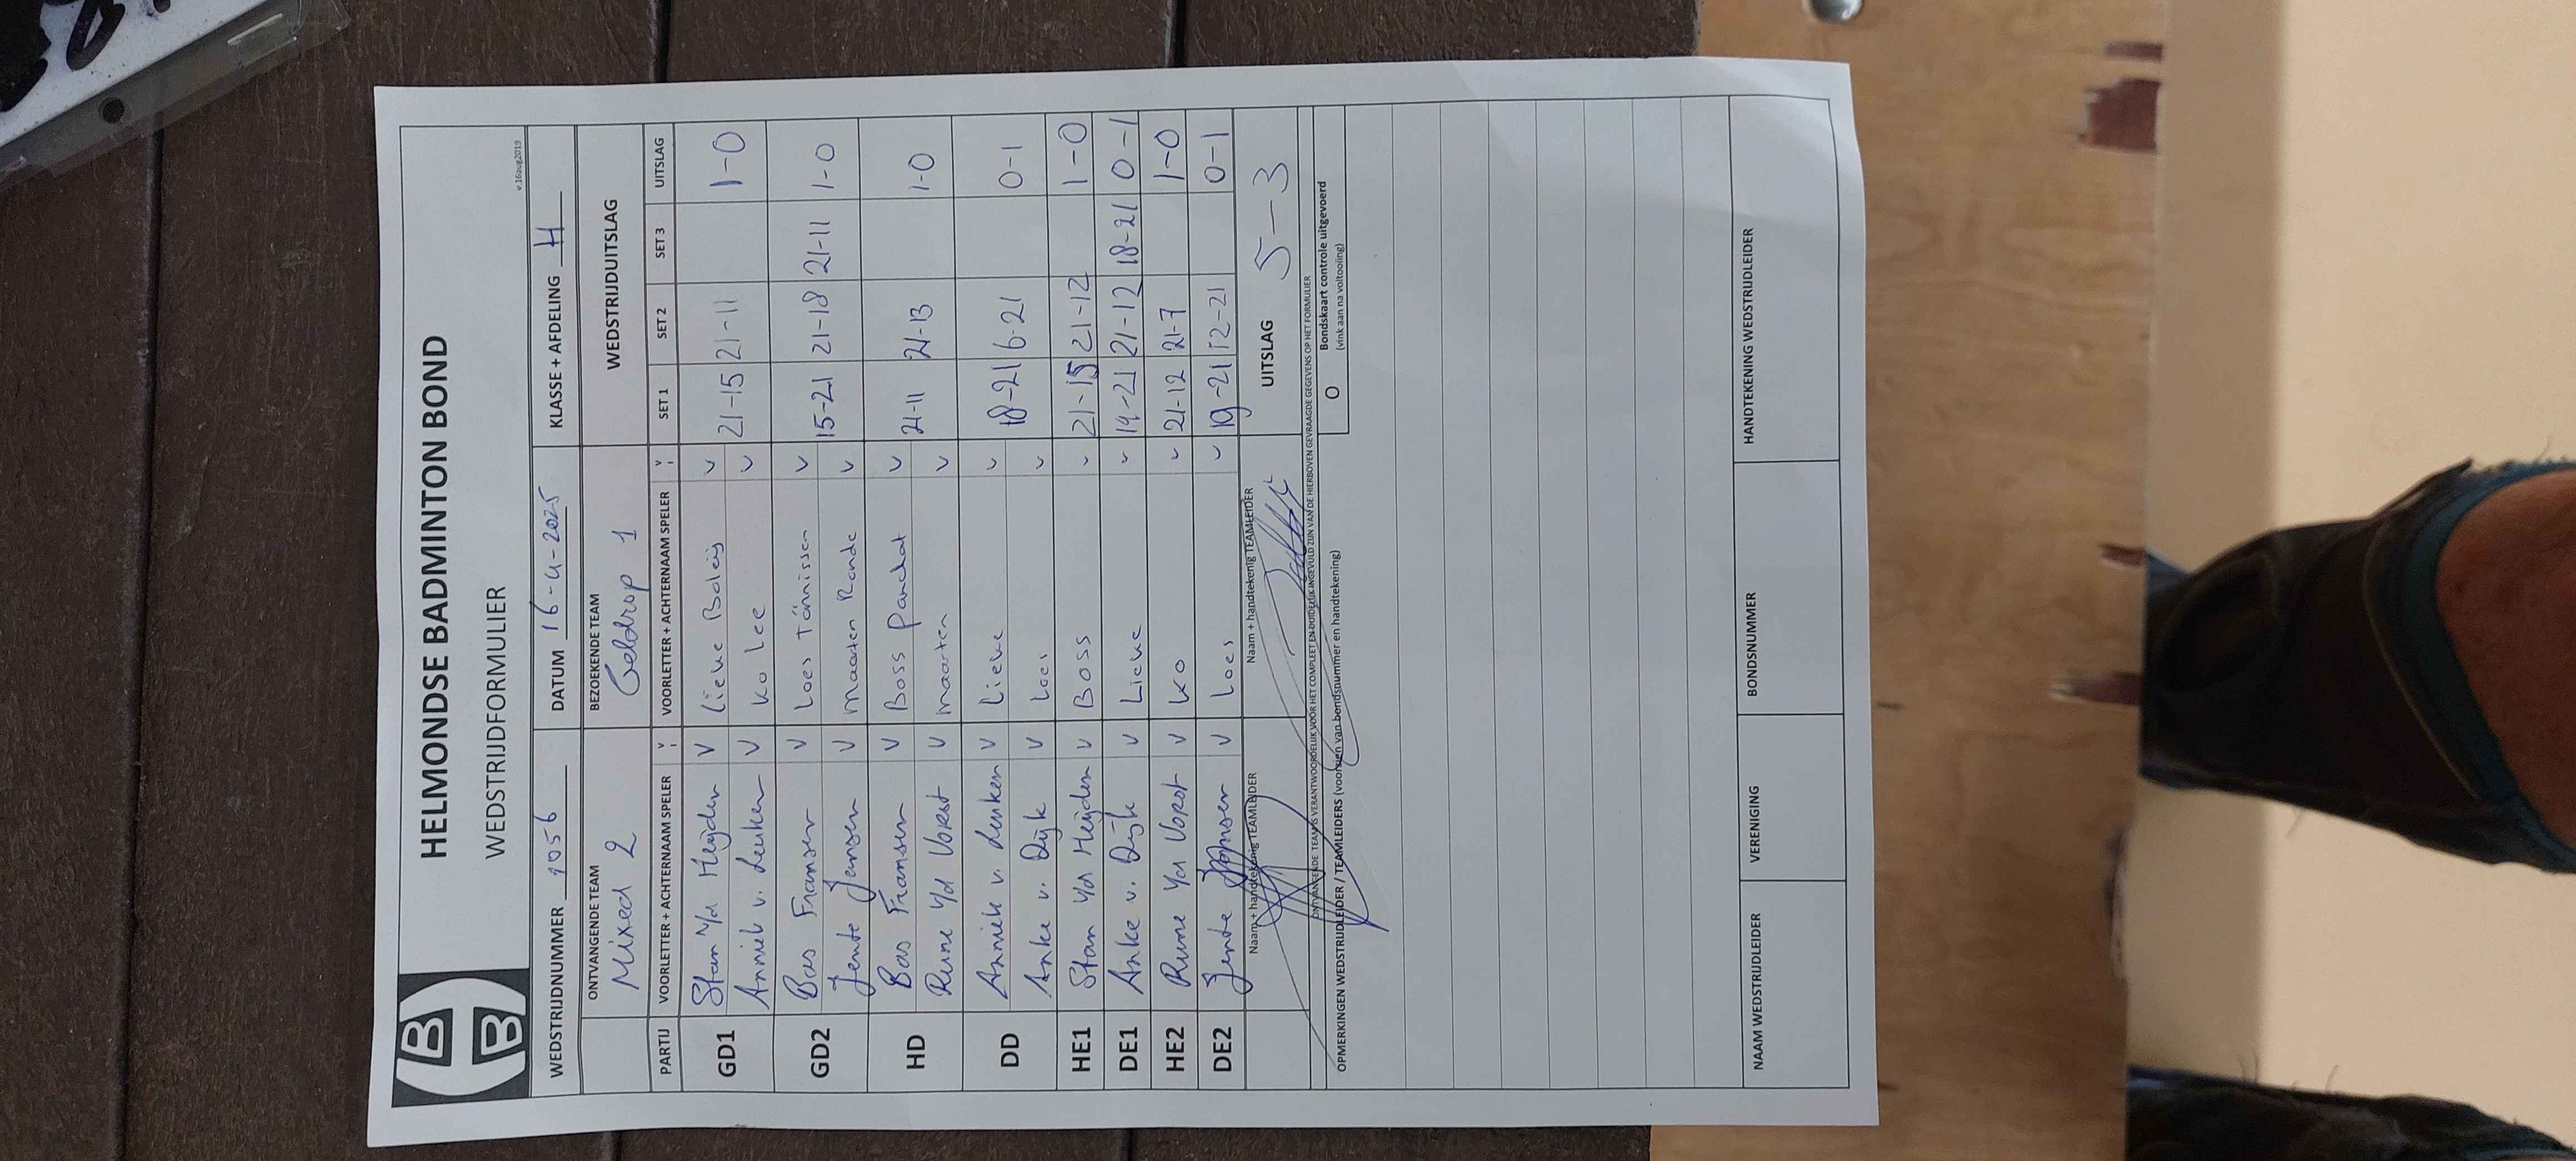 HELMONDSE BADMINTON BOND
WEDSTRIJDFORMULIER
v.16aug2019
WEDSTRIJDNUMMER 1056 DATUM 16-4-2025 KLASSE + AFDELING H
ONTVANGENDE TEAM BEZOEKENDE TEAM WEDSTRIJDUITSLAG
Mixed 2 Geldrop 1
PARTIJ VOORLETTER + ACHTERNAAM SPELER V VOORLETTER + ACHTERNAAM SPELER V SET 1 SET 2 SET 3 UITSLAG
GD1 Stan v/d Heijden V Lieke Boleij V 21-15 21-11 1-0
Anniek v. Leuken V Ko Lee V
GD2 Bas Fransen V Loes Tönnissen V 15-21 21-18 21-11 1-0
Jente Jansen V Maarten Rande V
HD Bas Fransen V Boss Panchat V 21-11 21-13 1-0
Rune v/d Vorst V Maarten V
DD Anniek v. Leuken V Lieke V 18-21 6-21 0-1
Anke v. Dijk V Loes V
HE1 Stan v/d Heijden V Boss V 21-15 21-12 1-0
DE1 Anke v. Dijk V Lieke V 14-21 21-12 18-21 0-1
HE2 Rune v/d Vorst V Ko V 21-12 21-7 1-0
DE2 Jente Jansen V Loes V 19-21 12-21 0-1
Naam + handtekenig TEAMLEIDER Naam + handtekenig TEAMLEIDER UITSLAG 5-3
ONTVANGENDE TEAM IS VERANTWOORDELIJK VOOR HET COMPLEET EN DUIDELIJK INGEVULD ZIJN VAN DE HIERBOVEN GEVRAAGDE GEGEVENS OP HET FORMULIER
OPMERKINGEN WEDSTRIJDLEIDER / TEAMLEIDERS (voorzien van bondsnummer en handtekening)
O Bondskaart controle uitgevoerd
(vink aan na voltooiing)
NAAM WEDSTRIJDLEIDER VERENIGING BONDSNUMMER HANDTEKENING WEDSTRIJDLEIDER